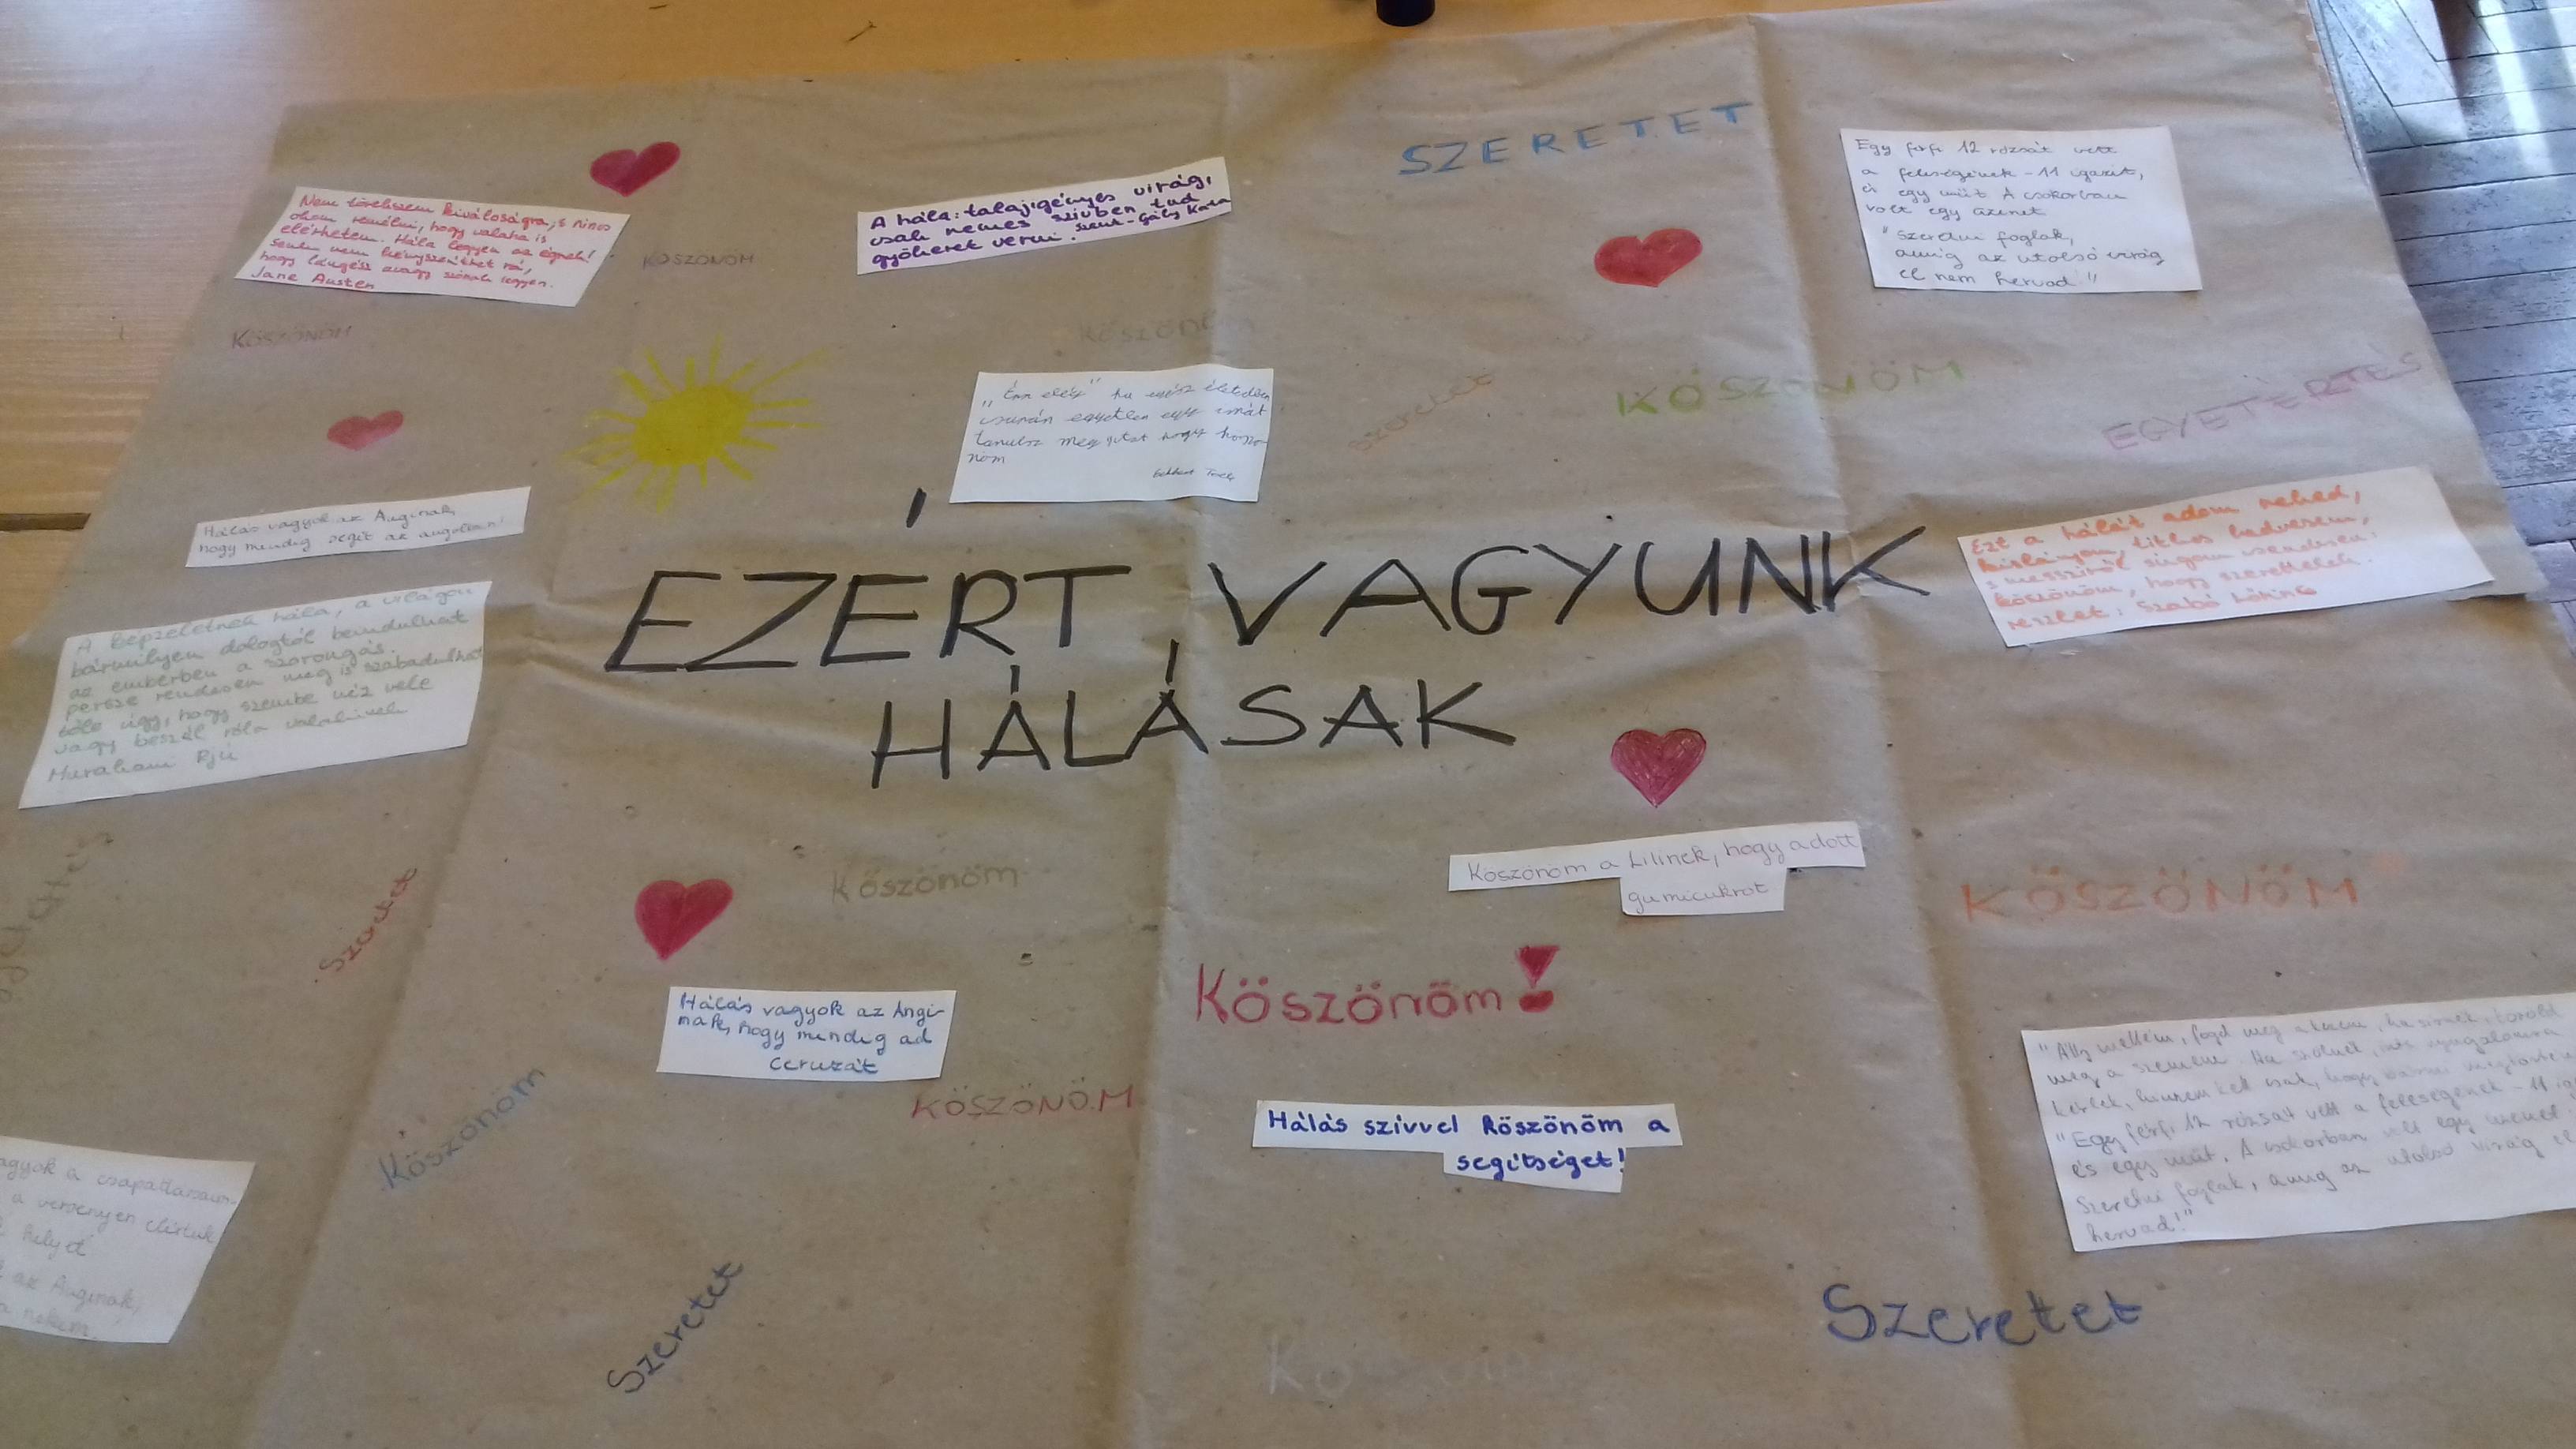 SZERETET
Egy férfi 12 rózsát vett
a feleségének - 11 igazit,
és egy műt. A csokorban
volt egy üzenet
"Szeretni foglak,
amíg az utolsó virág
el nem hervad."
Nem törekszem kiválóságra, s nincs
okom remélni, hogy valaha is
elérhetem. Hála legyen az égnek!
Senki nem kényszeríthet rá,
hogy lángész avagy szónok legyen.
Jane Austen
KÖSZÖNÖM
A hála: talajigényes virág,
csak nemes szívben tud
gyökeret verni. Szent-Gály Kata
KÖSZÖNÖM
KÖSZÖNÖM
"Épp elég" ha egész életedben
csupán egyetlen egy imát
tanulsz meg, jutat hogy köszö-
nöm
Eckhart Tolle
Szeretet
KÖSZÖNÖM
EGYETÉRTÉS
Hálás vagyok az Anginak,
hogy mindig segít az angolban!
Ezt a hálát adom neked,
kislányom, titkos kedvesem,
s messziről súgom csendesen:
köszönöm, hogy szerettelek.
részlet: Szabó Lőrinc
EZÉRT VAGYUNK
HÁLÁSAK
A képzeletnek hála, a világon
bármilyen dologtól beindulhat
az emberben a szorongás.
persze rendesen meg is szabadulhat
tőle úgy, hogy szembe néz vele
vagy beszél róla valakivel
Murakami Rjú
Köszönöm a Lilinek, hogy adott
gumicukrot
Szeretet
Köszönöm
KÖSZÖNÖM
Köszönöm!
Hálás vagyok az Angi-
nak, hogy mindig ad
ceruzát
KÖSZÖNÖM
Köszönöm
Hálás szívvel köszönöm a
segítséget!
"Állj mellém, fogd meg a kezem, ha sírnék, töröld
meg a szemem. Ha szólnék, ints nyugalomra
kérlek, hinnem kell csak, hogy
"Egy férfi 12 rózsát vett a feleségének - 11
és egy műt. A csokorban volt egy üzenet
Szeretni foglak, amíg az utolsó virág el
hervad!"
agyok a csapattársaim-
a versenyen elértük
helyet
az Anginak,
nekem
Szeretet
Szeretet